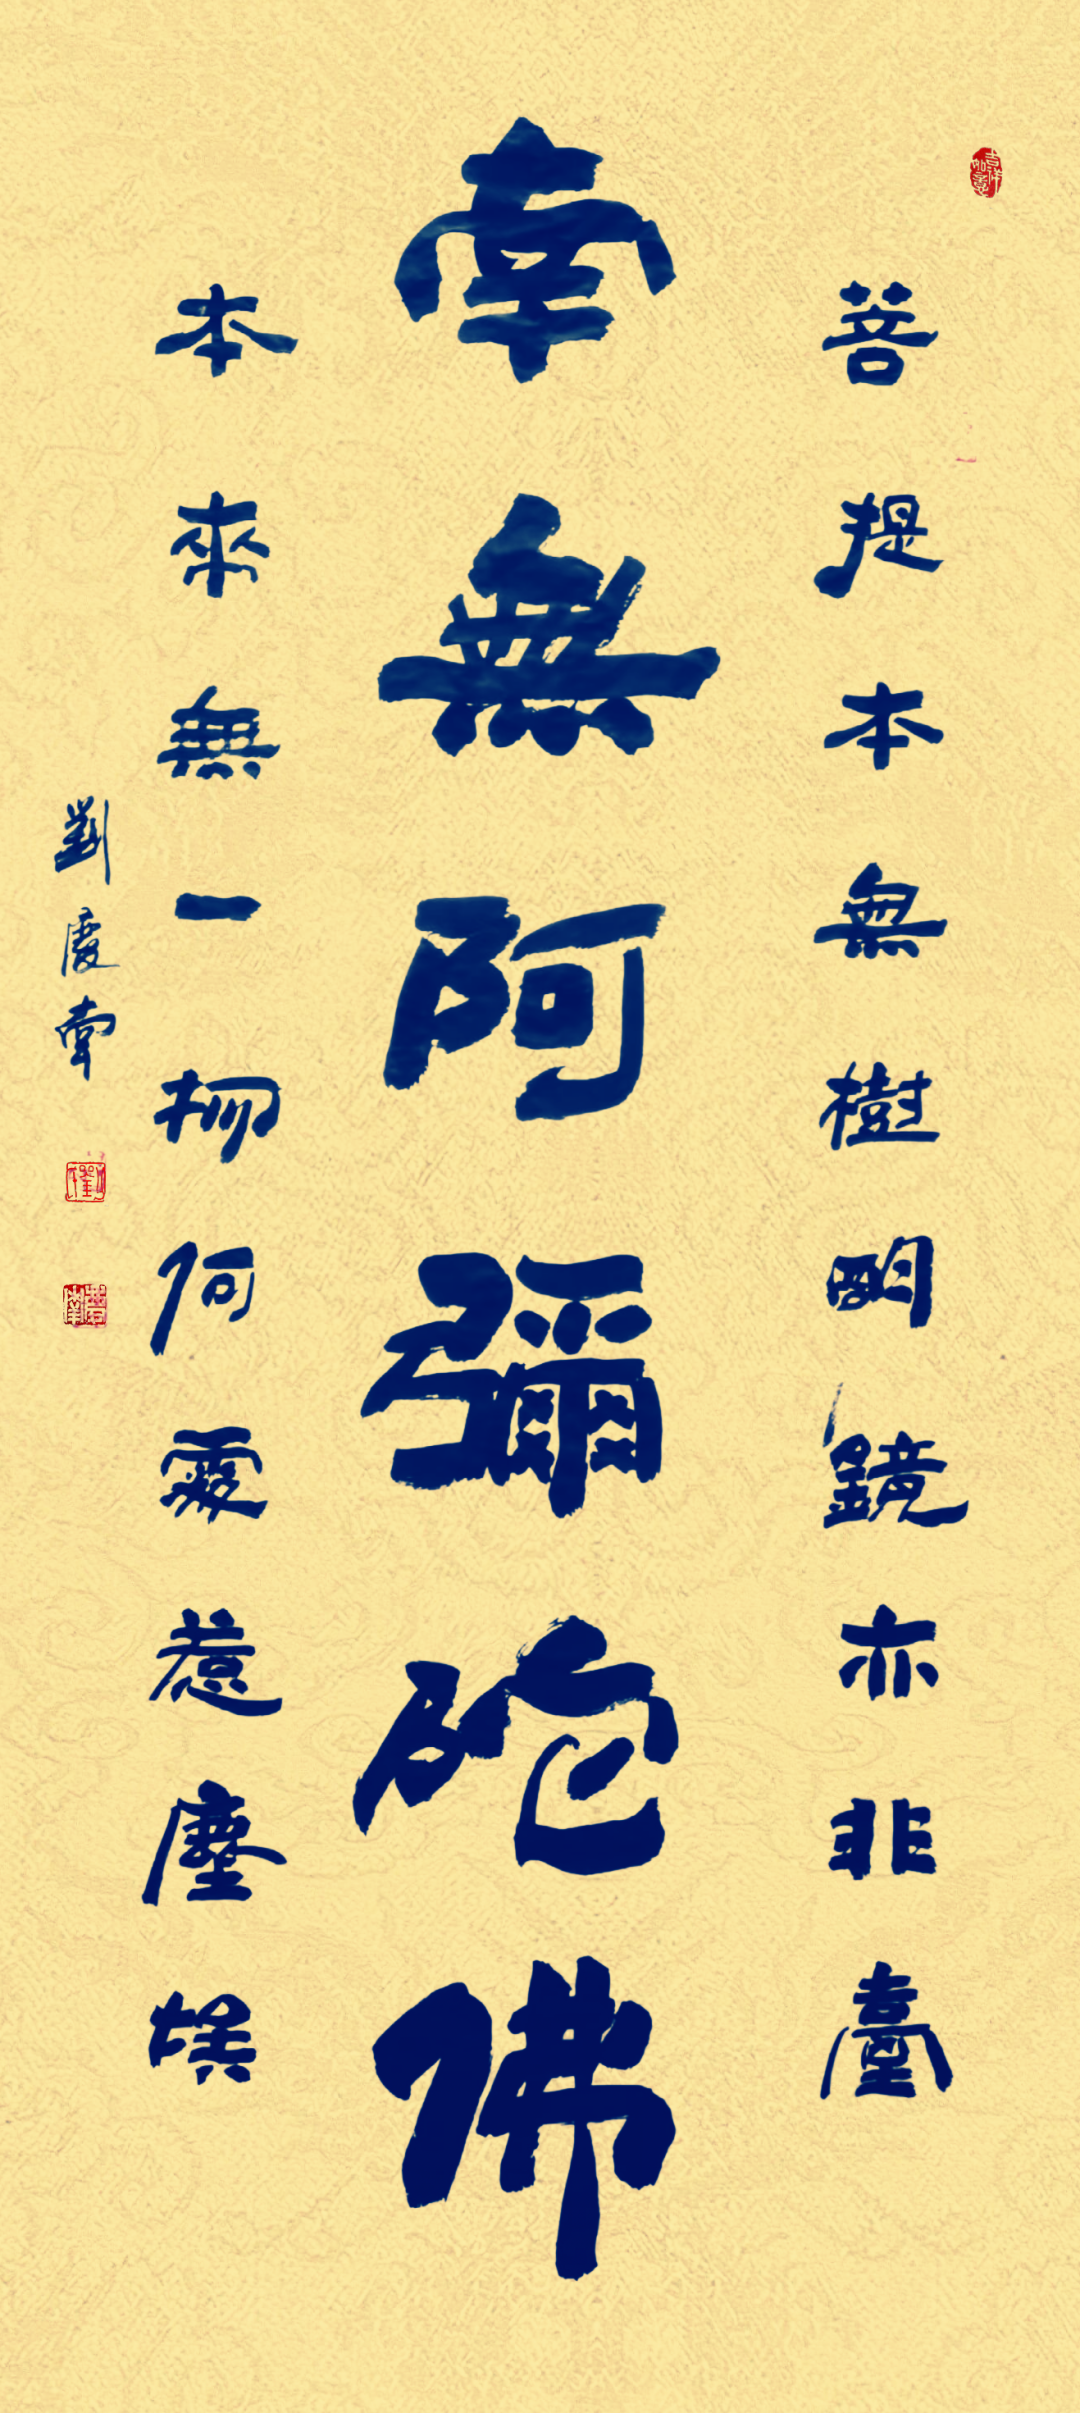 菩提本無樹明鏡亦非臺
南無阿彌陀佛
本來無一物何處惹塵埃
劉慶南
吉祥如意